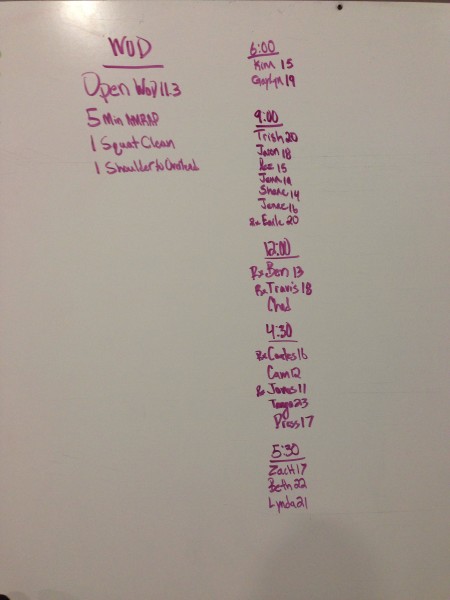 WOD
Open WOD 11.3
5 Min AMRAP
1 Squat Clean
1 Shoulder to Overhead
6:00
Kim 15
19
9:00
Trish 20
Jason 18
15
Jenn 19
Shane 14
16
Rx Earle 20
12:00
Rx Ben 13
Rx Travis 18
Chad
4:30
Rx 16
Cam 12
Rx James 11
23
17
5:30
Zach 17
Beth 22
Lynda 21